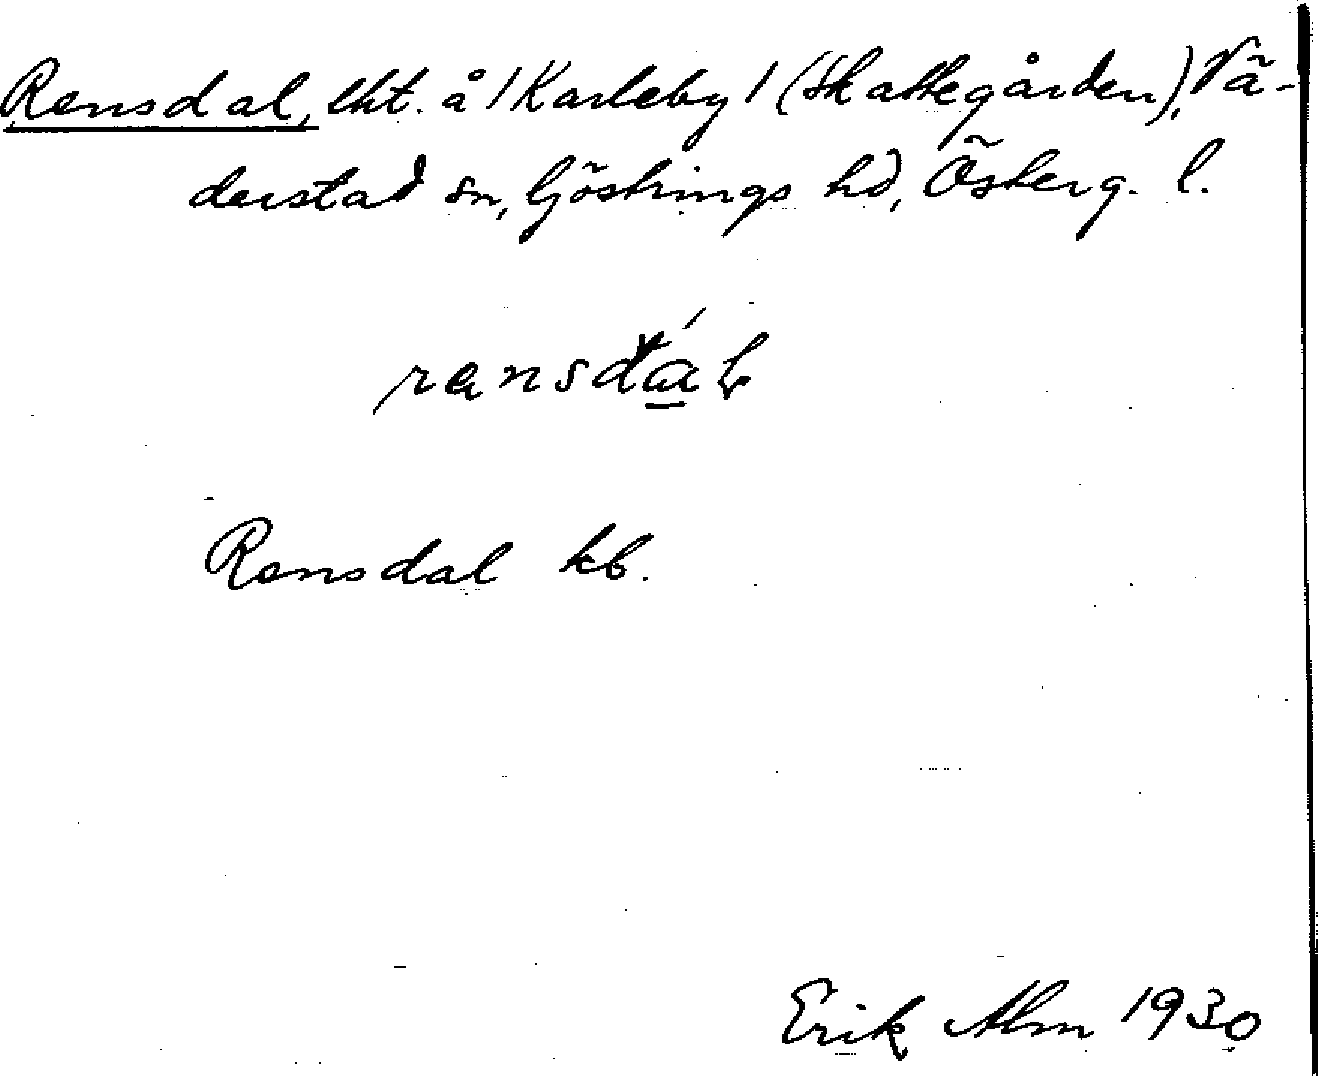 Rensdal, lht. å 1 Karleby 1 (Skattegården), Vä-
derstad sn, Göstrings hd, Österg. l.
Rensdal kb.
Erik Alm 1930